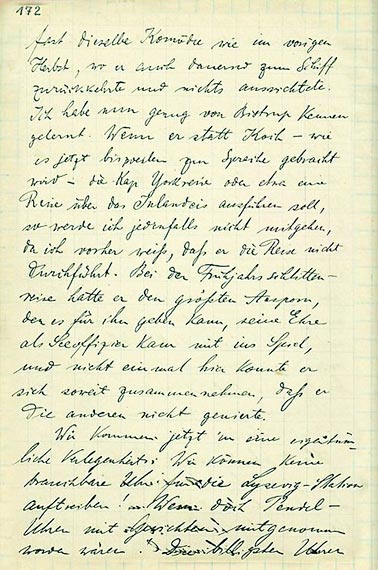 172
fast dieselbe Komödie wie im vorigen
Herbst, wo er auch dauernd zum Schiff
zurückkehrte und nichts ausrichtete.
Ich habe nun genug von Bistrup kennen
gelernt. Wenn er statt Koch – wie
es jetzt bisweilen zur Sprache gebracht
wird – die Kap Yorkreise oder etwa eine
Reise über das Inlandeis ausführen soll,
so werde ich jedenfalls nicht mitgehen,
da ich vorher weiß, daß er die Reise nicht
durchführt. Bei der Frühjahrsschlitten-
reise hatte er den größten Ansporn,
den es für ihn geben kann, seine Ehre
als Seeoffizier kam mit ins Spiel,
und nicht einmal hier konnte er
sich soweit zusammennehmen, daß er
die anderen nicht genierte.
Wir kommen jetzt in eine eigentüm-
liche Verlegenheit: Wir können keine
brauchbare Uhr für die
auftreiben! Wenn doch Pendel-
Uhren mit Gewichten mitgenommen
worden wären! Die billigsten Uhren